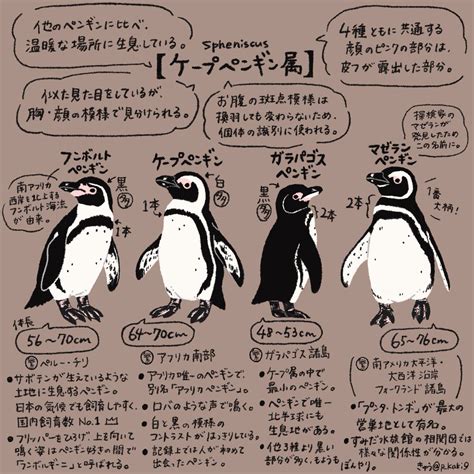 他のペンギンに比べ、
温暖な場所に生息している。
spheniscus
【ケープペンギン属】
4種ともに共通する
顔のピンクの部分は、
皮フが露出した部分。
似た見た目をしているが、
胸・顔の模様で見分けられる。
お腹の斑点模様は
換羽しても変わらないため、
個体の識別に使われる。
探検家の
マゼランが
発見したため
この名前に。
フンボルト
ペンギン
南アメリカ
西岸を北上する
フンボルト海流
が由来。
黒
多
1本
ケープペンギン
白
多
1本
ガラパゴス
ペンギン
黒
多
2本
マゼラン
ペンギン
2本
1番
大柄!
体長
56~70cm
64~70cm
48~53cm
65~76cm
ペルー・チリ
サボテンが生えているような
土地に生息するペンギン。
日本の気候でも飼育しやすく、
国内飼育数No.1
フリッパーをひろげ、上を向いて
鳴く姿はペンギン好きの間で
「ランボルギーニ」と呼ばれる。
アフリカ南部
アフリカ唯一のペンギンで、
別名「アフリカペンギン」。
ロバのような声で鳴く。
白と黒の模様の
コントラストがはっきりしている。
記録上では人が初めて
出会ったペンギン。
ガラパゴス諸島
ケープ属の中で
最小のペンギン。
ペンギンで唯一
北半球にも
生息地がある。
他3種より黒い
部分が多く、まるで
ぼんやり
南アメリカ太平洋・
大西洋沿岸
フォークランド諸島
「プンタ・トンボ」が最大の
営巣地として有名。
すみだ水族館の相関図では
様々な関係性が分かる。